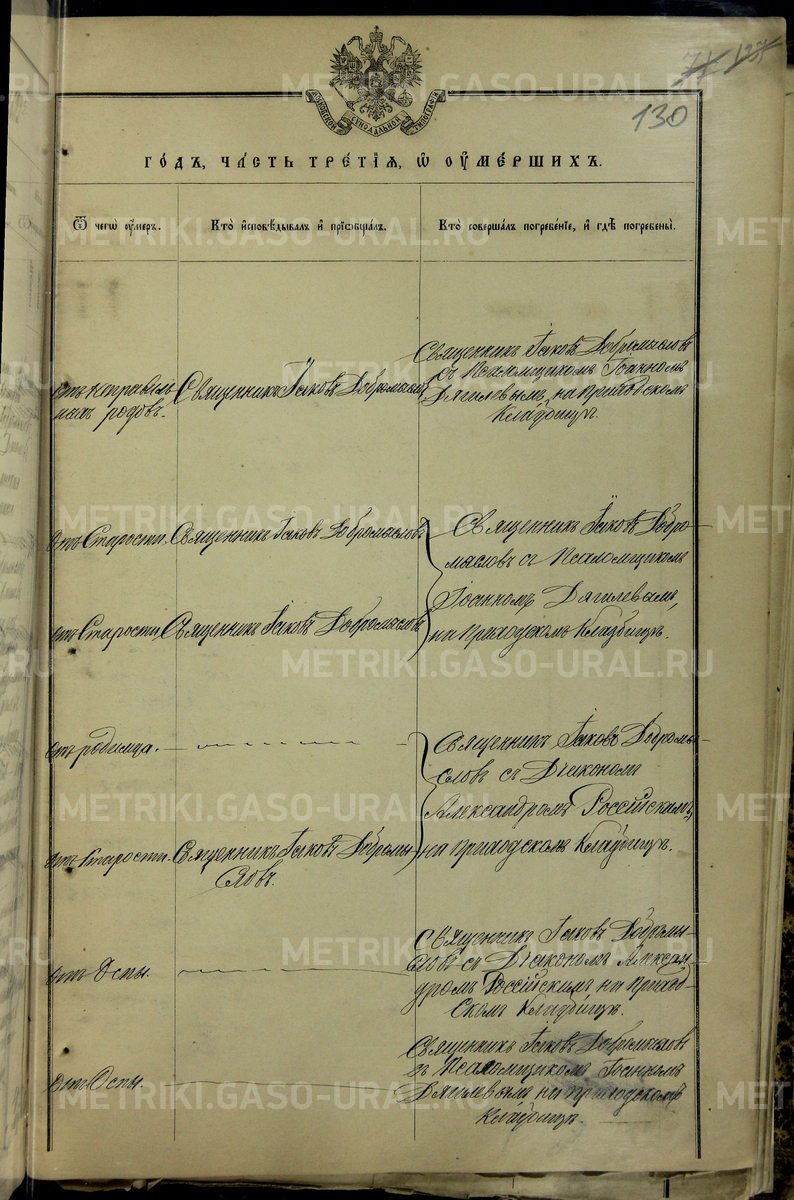 130
МОСКОВСКОЙ СѴНОДАЛЬНОЙ ТИПОГРАФІИ
ГО́ДЪ, ЧА́СТЬ ТРЕ́ТІѦ, Ѡ ОУМЕ́РШИХЪ.
Ѿ чегѡ̀ оу́меръ.
Кто̀ исповѣ́дывалъ и҆ прїѡбща́лъ.
Кто̀ соверша́лъ погребе́нїе, и҆ гдѣ̀ погребены̀.
отъ неправиль
ныхъ родовъ.
Священникъ Іаковъ Добромысловъ
Священникъ Іаковъ Добромысловъ
съ Псаломщикомъ Іоанномъ
Дягилевымъ, на Приходскомъ
Кладбищѣ.
отъ Старости.
Священникъ Іаковъ Добромысловъ
Священникъ Іаковъ Добро-
мысловъ съ Псаломщикомъ
Іоанномъ Дягилевымъ,
на Приходскомъ Кладбищѣ.
отъ Старости.
Священникъ Іаковъ Добромысловъ
отъ родимца.
Священникъ Іаковъ Добромы-
словъ съ Діакономъ
Александромъ Россійскимъ,
на Приходскомъ Кладбищѣ.
отъ Старости.
Священникъ Іаковъ Добромы
словъ.
отъ Оспы.
Священникъ Іаковъ Добромы-
словъ съ Діакономъ Алексан
дромъ Россійскимъ на Приход-
скомъ Кладбищѣ.
отъ Оспы.
Священникъ Іаковъ Добромысловъ
съ Псаломщикомъ Іоанномъ
Дягилевымъ на Приходскомъ
Кладбищѣ.
METRIKI.GASO-URAL.RU